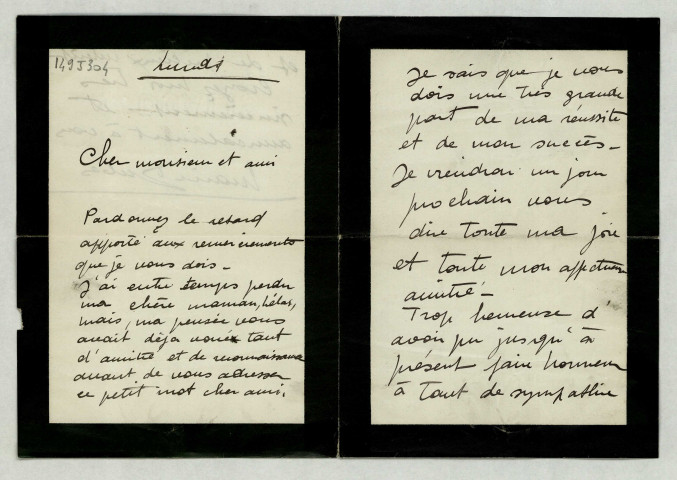 149J304
lundi
Cher monsieur et ami
Pardonnez le retard
apporté aux remerciements
que je vous dois -
J'ai entre temps perdu
ma chère maman, hélas,
mais, ma pensée vous
avait déjà voué tant
d'amitié et de reconnaissance
avant de vous adresser
ce petit mot cher ami.
Je sais que je vous
dois une très grande
part de ma réussite
et de mon succès -
Je viendrai un jour
prochain vous
dire toute ma joie
et toute mon affectueuse
amitié -
Trop heureuse d'
avoir pu jusqu'à
présent faire honneur
à tant de sympathie